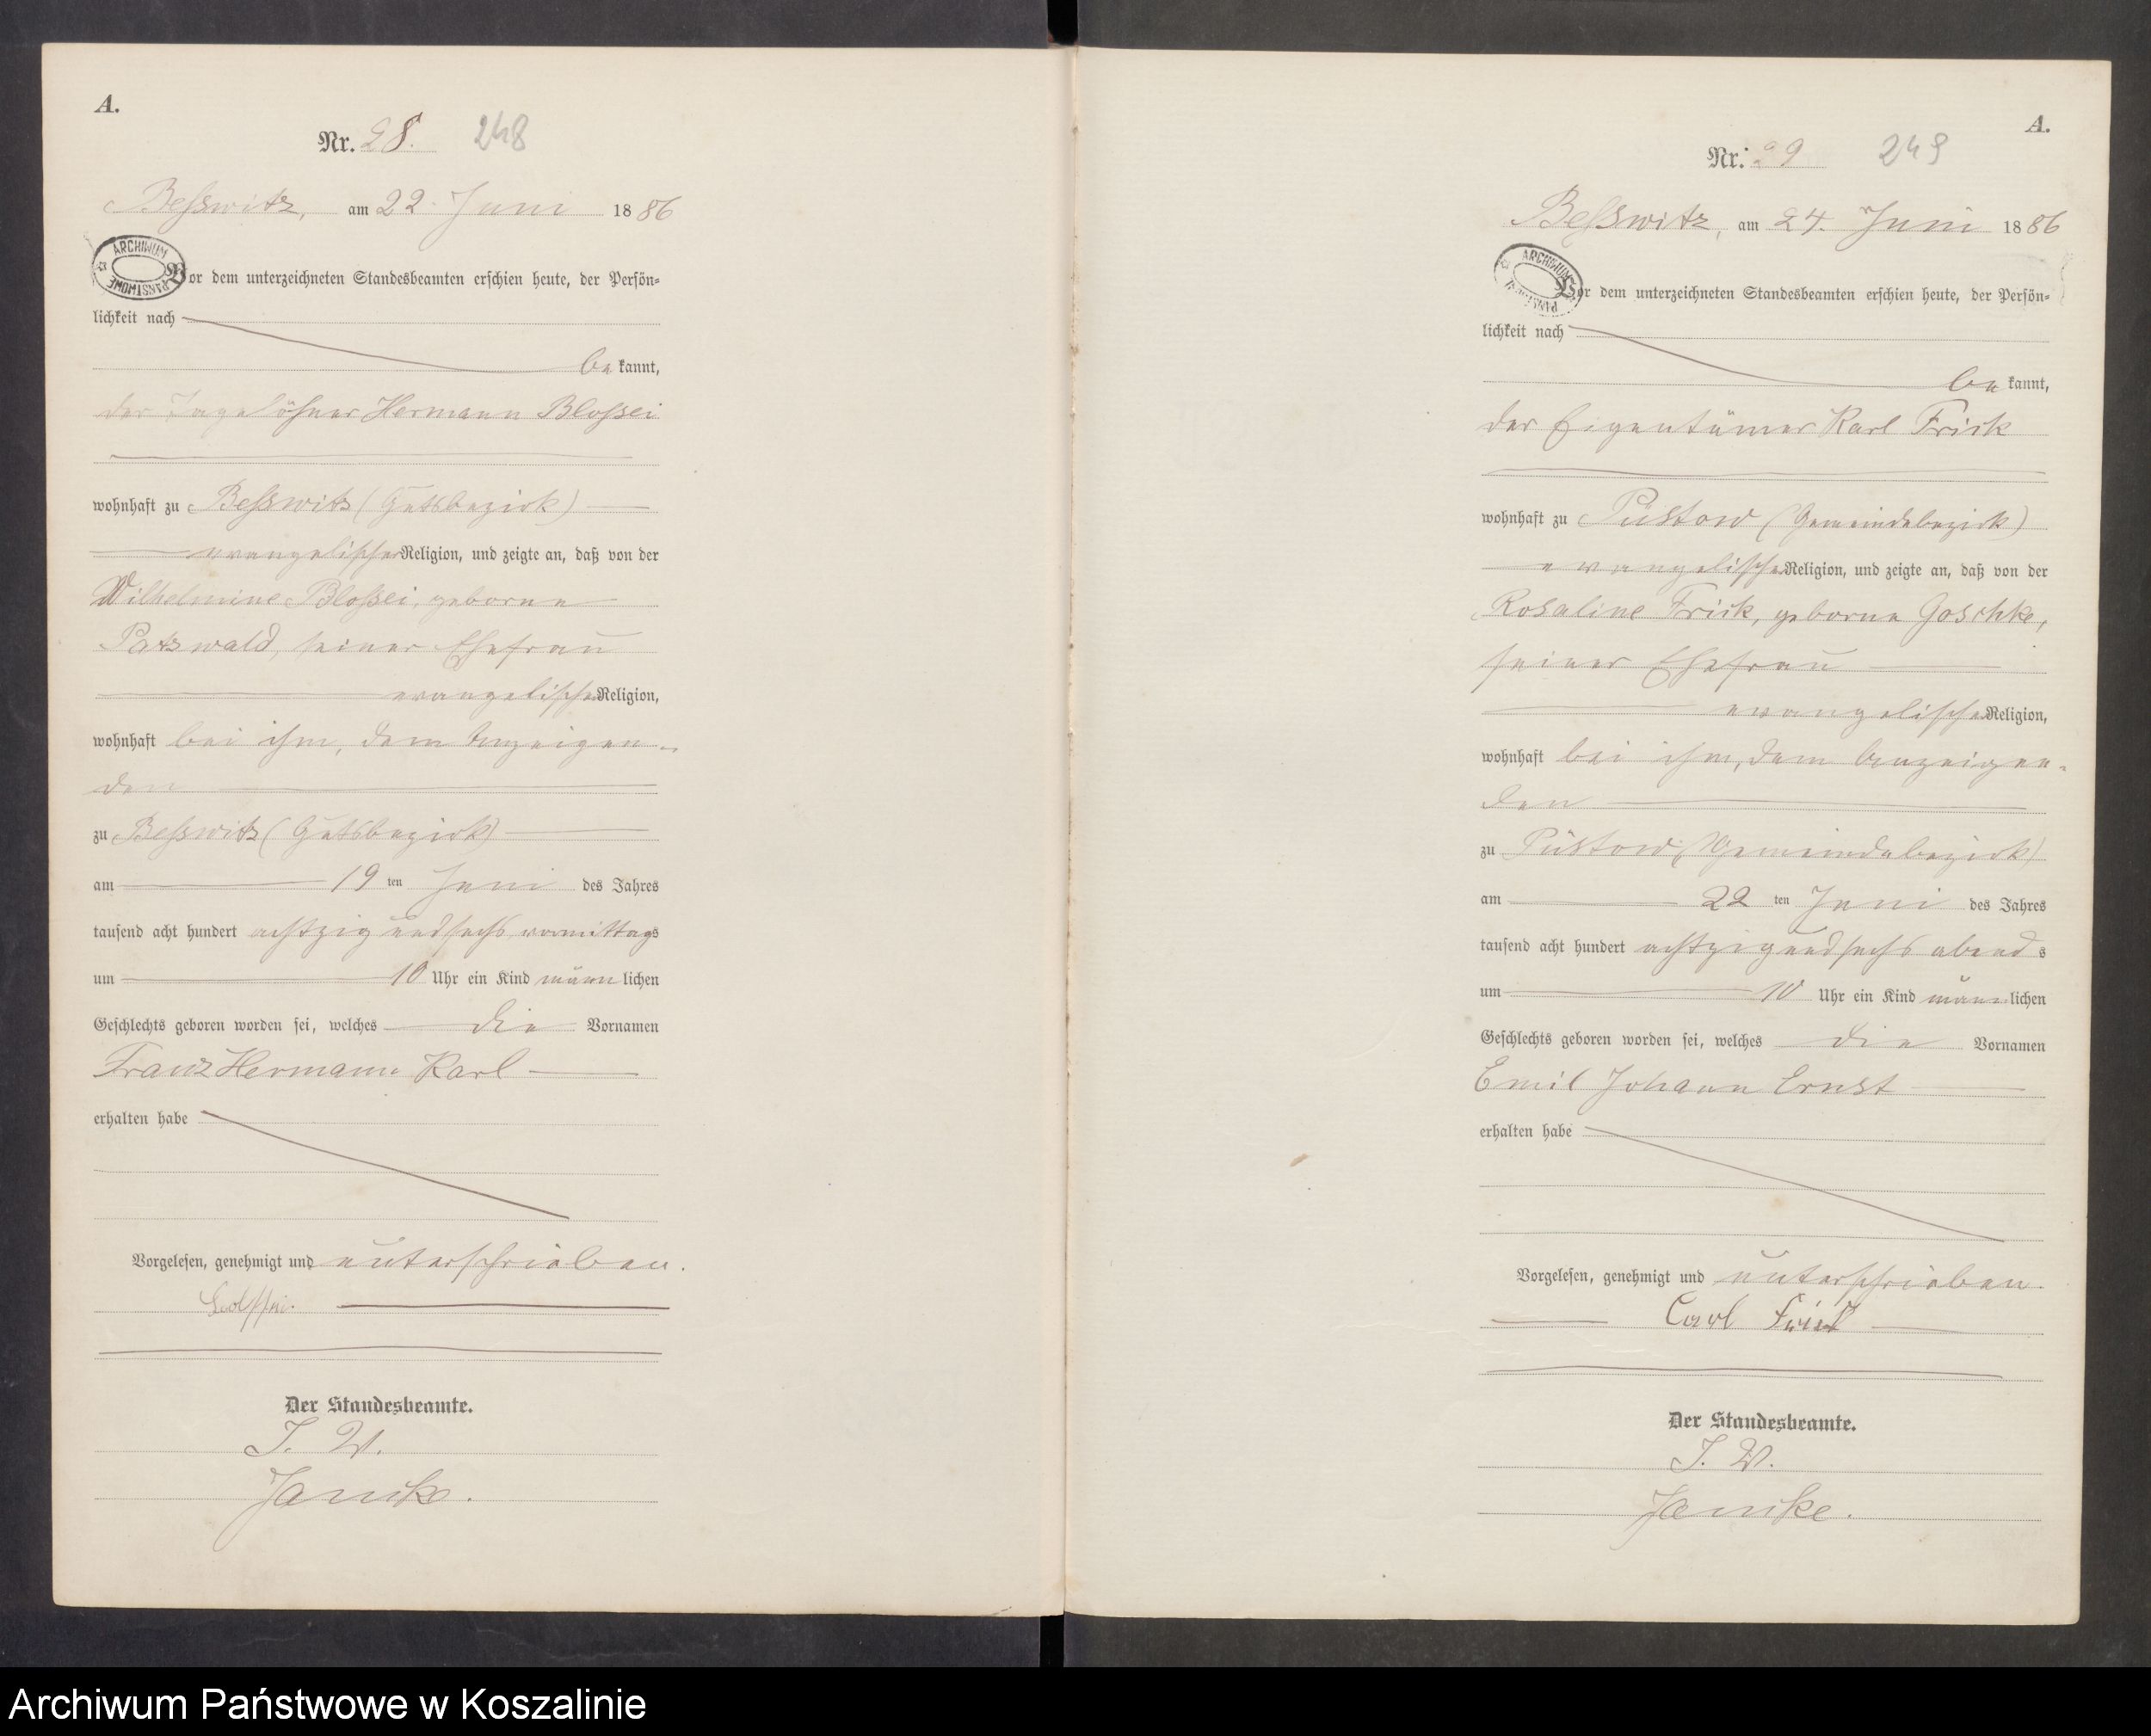 A.
Nr. 28. 248
Beßwitz, am 22. Juni 1886
ARCHIWUM PAŃSTWOWE
Vor dem unterzeichneten Standesbeamten erschien heute, der Persön-
lichkeit nach
bekannt,
der Tagelöhner Hermann Bloßei
wohnhaft zu Beßwitz (Gutsbezirk)
evangelischer Religion, und zeigte an, daß von der
Wilhelmine Bloßei, geborne
Patzwald, seiner Ehefrau
evangelischer Religion,
wohnhaft bei ihm, dem Anzeigen-
den
zu Beßwitz (Gutsbezirk)
am 19ten Juni des Jahres
tausend acht hundert achtzig und sechs vormittags
um 10 Uhr ein Kind männlichen
Geschlechts geboren worden sei, welches die Vornamen
Franz Hermann Karl
erhalten habe
Vorgelesen, genehmigt und unterschrieben.
Der Standesbeamte.
J. V.
Jancke.
A.
Nr. 29 249
Beßwitz, am 24. Juni 1886
ARCHIWUM PAŃSTWOWE
Vor dem unterzeichneten Standesbeamten erschien heute, der Persön-
lichkeit nach
bekannt,
der Eigentümer Karl Frick
wohnhaft zu Püstow (Gemeindebezirk)
evangelischer Religion, und zeigte an, daß von der
Rosaline Frick, geborne Goschke,
seiner Ehefrau
evangelischer Religion,
wohnhaft bei ihm, dem Anzeigen-
den
zu Püstow (Gemeindebezirk)
am 22ten Juni des Jahres
tausend acht hundert achtzig und sechs abends
um 10 Uhr ein Kind männlichen
Geschlechts geboren worden sei, welches die Vornamen
Emil Johann Ernst
erhalten habe
Vorgelesen, genehmigt und unterschrieben.
Carl Frick
Der Standesbeamte.
J. V.
Jancke.
Archiwum Państwowe w Koszalinie